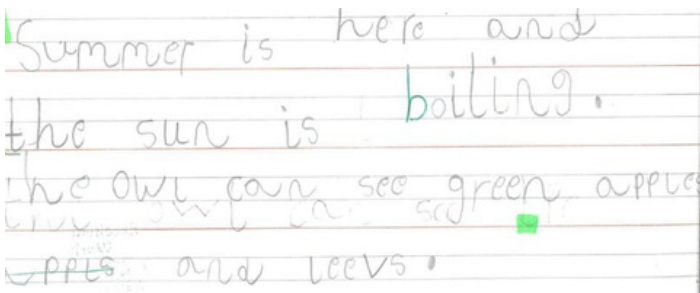 Summer is here and
the sun is boiling.
the owl can see green apples
appls and leevs.